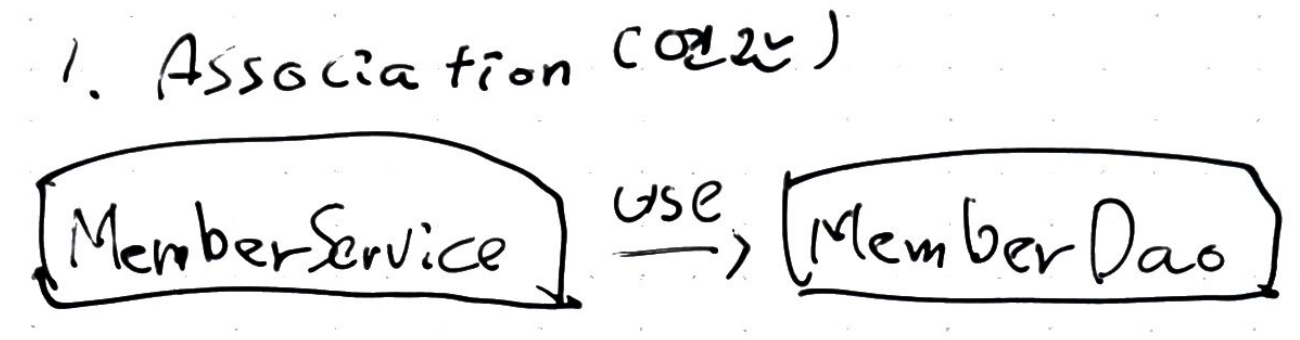 1. Association (연관)
MemberService use MemberDao